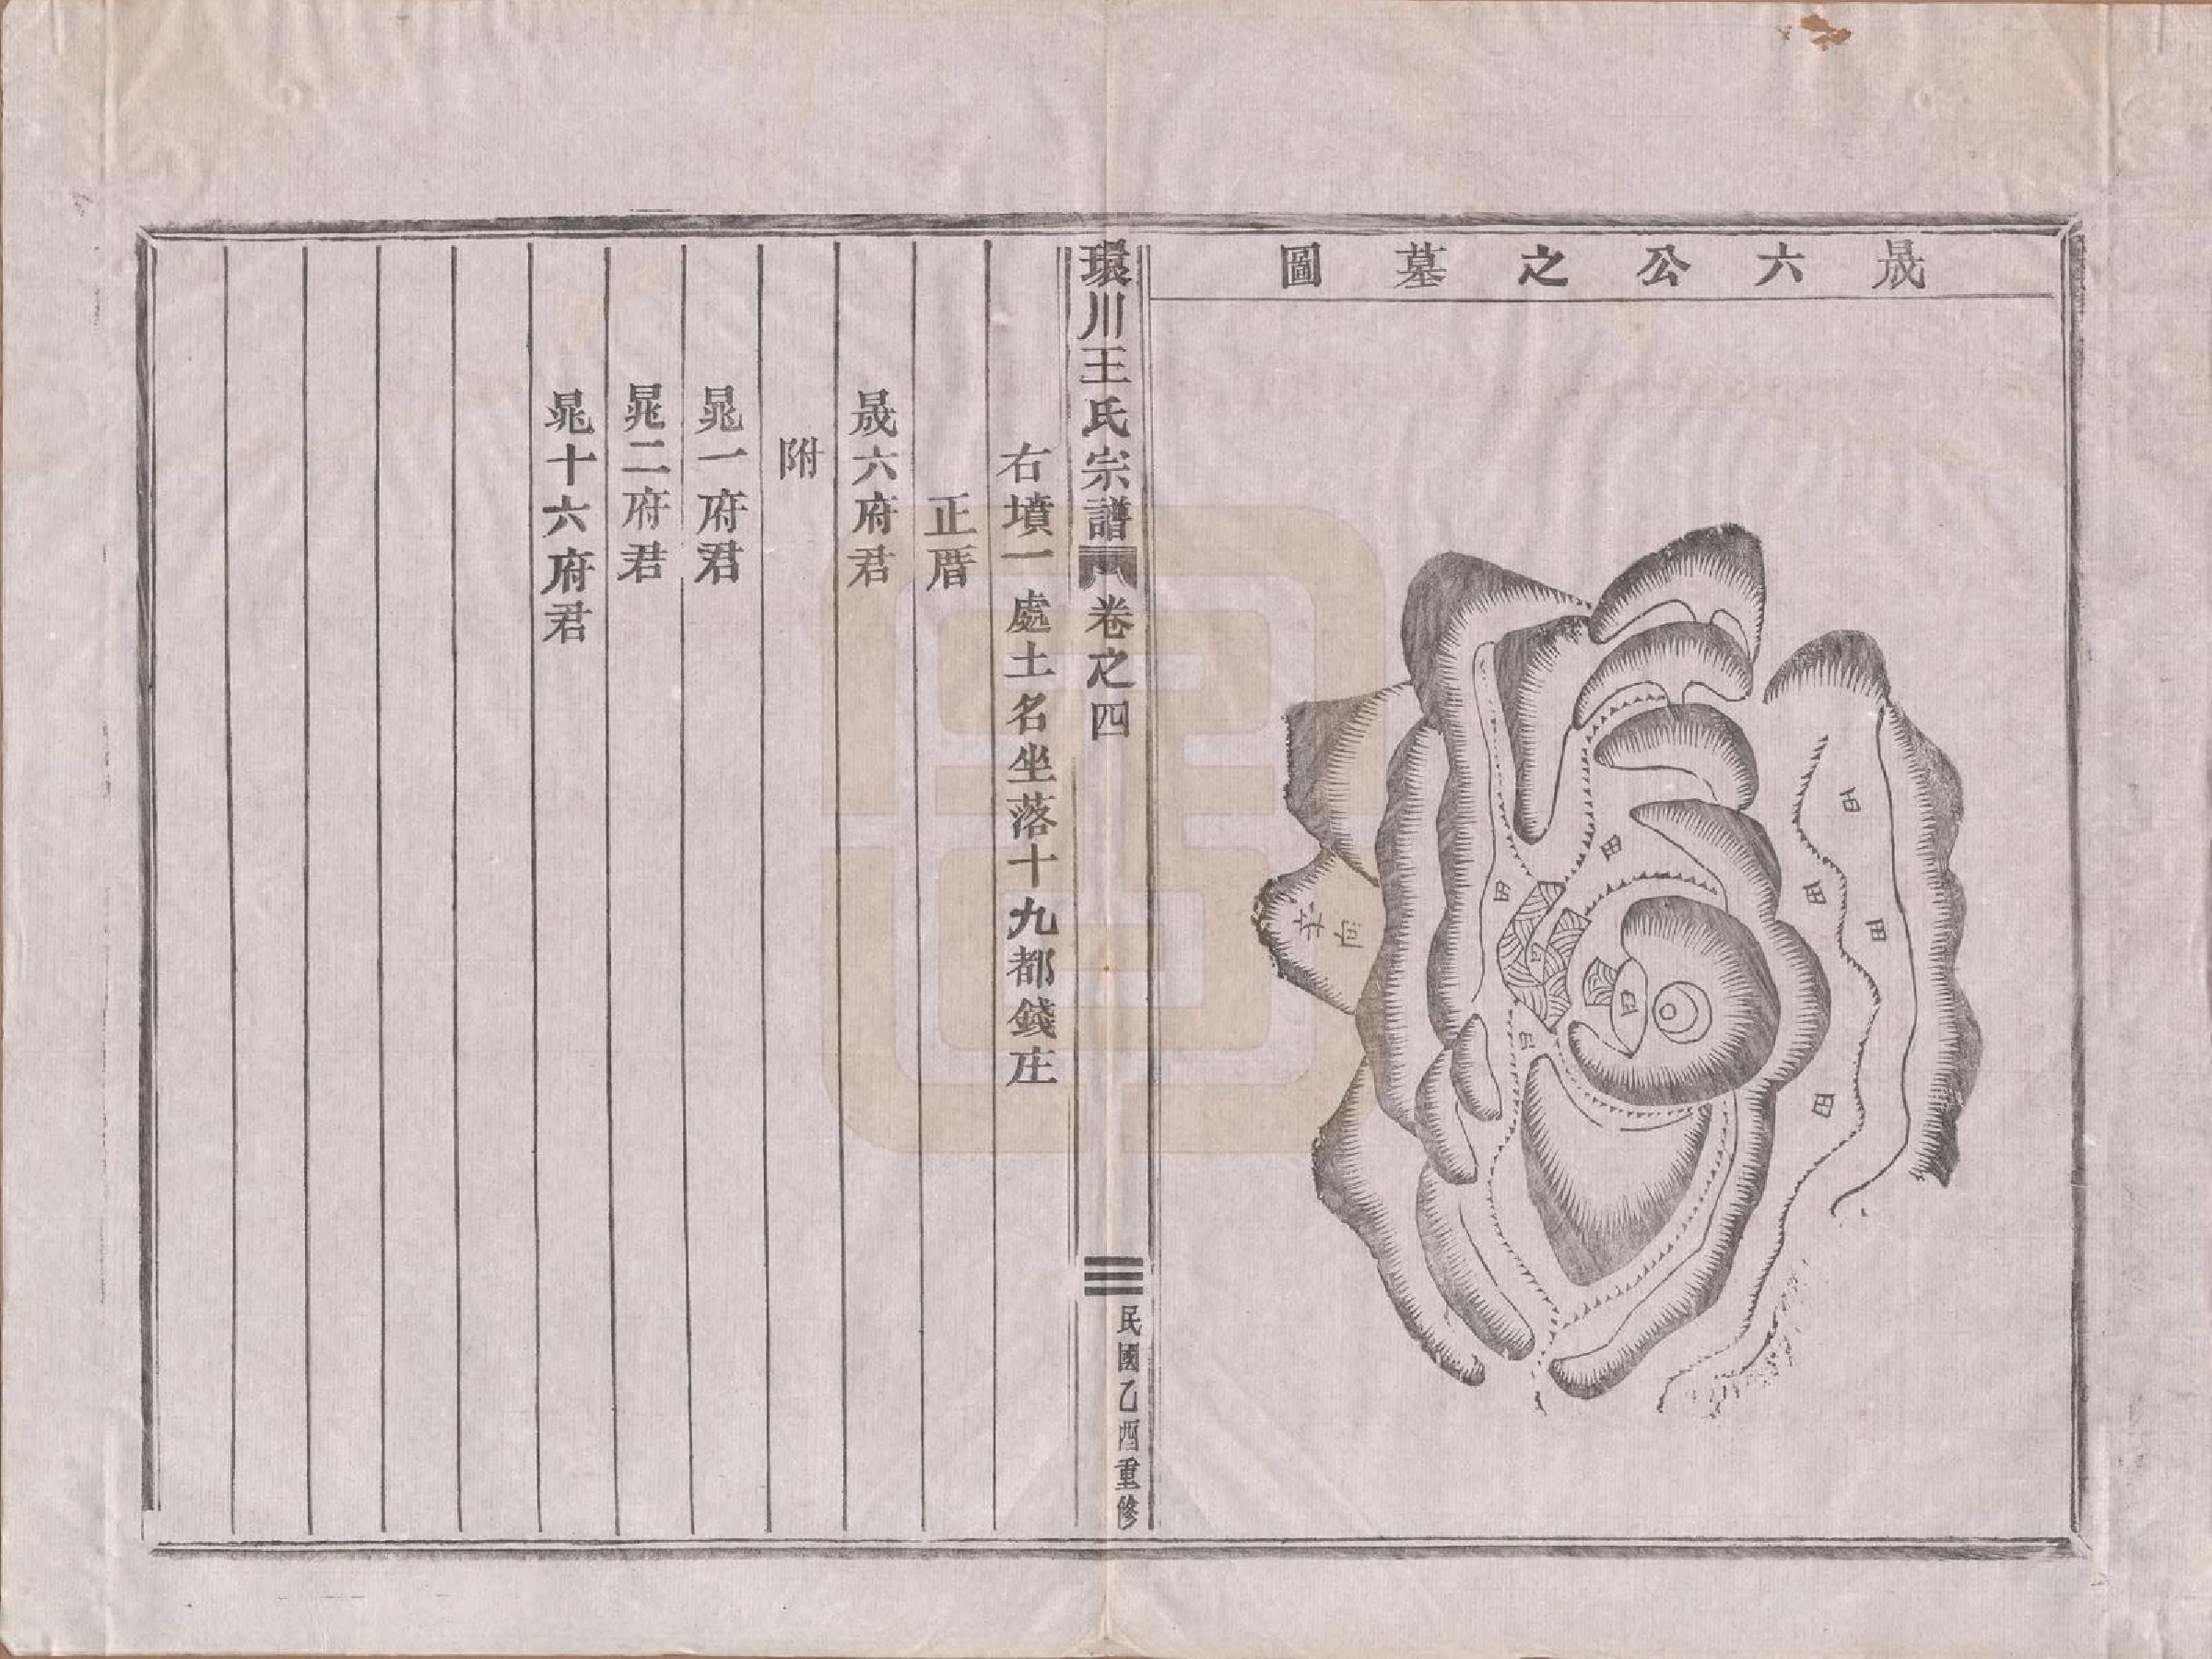 晟六公之墓圖
田
田
田
田
田
田
環川王氏宗譜
卷之四
三
民國乙酉重修
右墳一處土名坐落十九都錢庄
正厝
晟六府君
附
晁一府君
晁二府君
晁十六府君